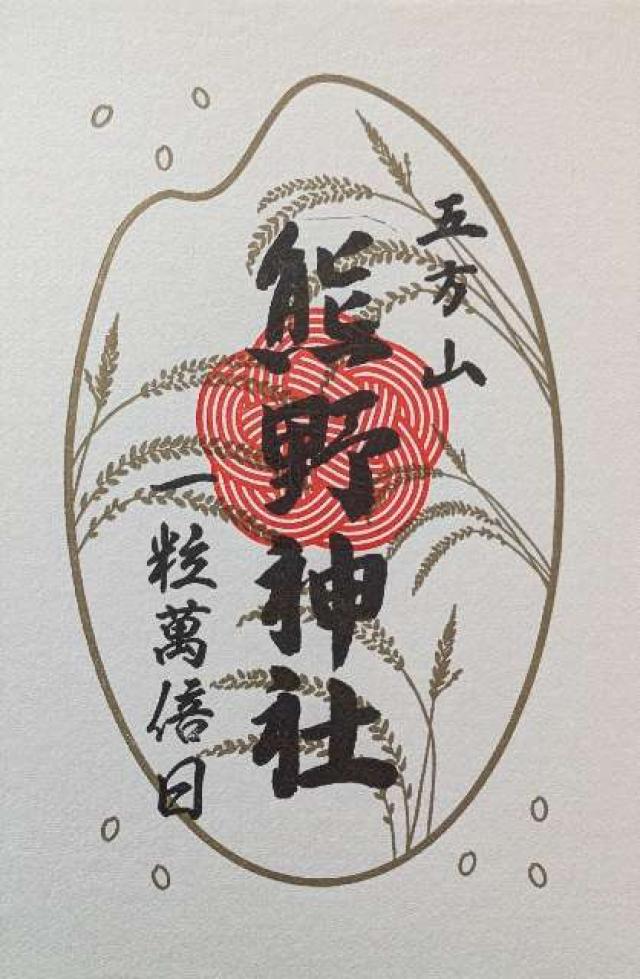 五方山
熊野神社
一粒萬倍日